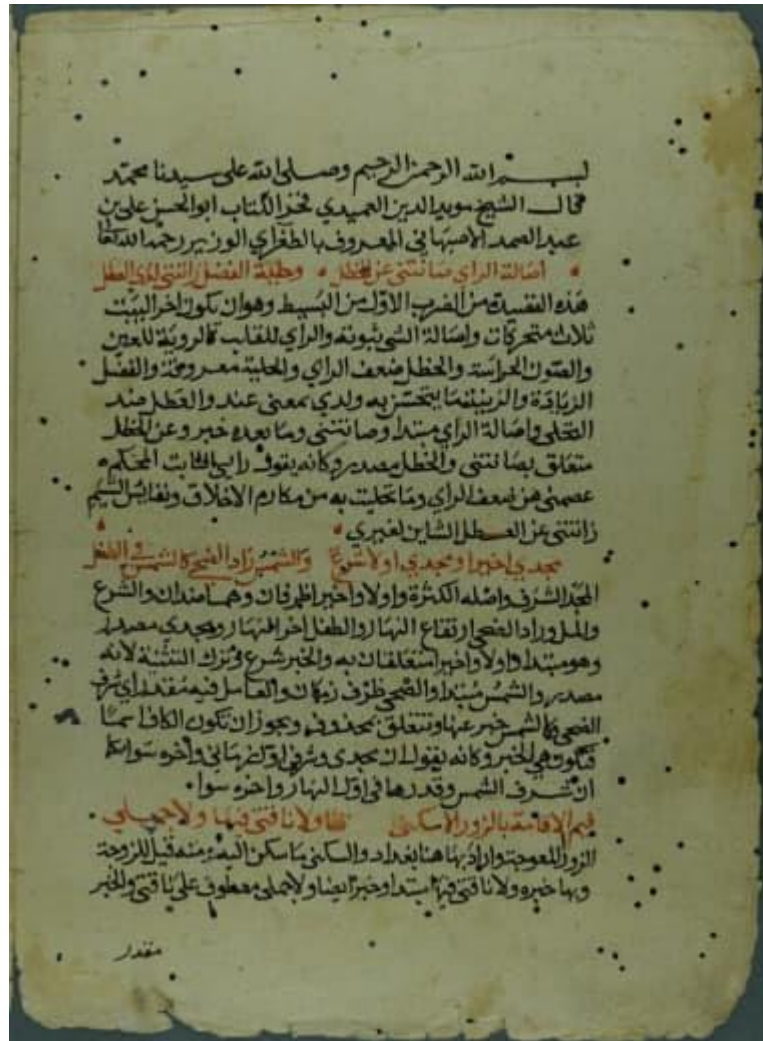 بسم الله الرحمن الرحيم وصلى الله على سيدنا محمد
قال الشيخ مويد الدين العميدي فخر الكتاب ابو الحسن علي بن
عبد الصمد الاصبهاني المعروف بالطغراي الوزير رحمه الله تعا
أصالة الراي صانتني عن الخطل وحلية الفضل زانتني لدي العطل
هذه القصيدة من الضرب الاول من البسيط وهو ان يكون اخر البيت
ثلاث متحركات واصالة الشي ثبوته والراي للقلب كالروية للعين
والصون الحراسة والخطل ضعف الراي والحلية معروفة والفضل
الزيادة والزينة ما يتحسن به ولدي بمعنى عند والعطل ضد
التحلى واصالة الراي مبتدا وصانتنى وما بعده خبر وعن الخطل
متعلق بصانتنى والخطل مصدر وكانه يقول رايي الثابت المحكم
عصمني من ضعف الراي وما تحليت به من مكارم الاخلاق ونفايس الشيم
زانتنى عن العطل الشاين لغيري
مجدي اخيرا ومجدي اولا شرع والشمس راد الضحى كالشمس في الطفل
المجد الشرف واصله الكثرة واولا واخيرا ظرفان وهما ضدان والشرع
والمثل وراد الضحى ارتفاع النهار والطفل اخر النهار ومجدي مصدر
وهو مبتدا واولا واخيرا متعلقان به والخبر شرع وترك التثنية لانه
مصدر والشمس مبتدا والضحى ظرف زمان والعامل فيه مقدر اي شرف
الضحى كالشمس خبر عنها وتتعلق بمحذوف ويجوز ان تكون الكاف اسما
فتكون هي الخبر وكانه يقول ان مجدى وشرفي اول نهاني واخره سوا كما
ان شرف الشمس وقدرها في اول النهار واخره سوا
فيم الاقامة بالزورا لاسكنى بها ولا ناقتي فيها ولا جملي
الزورا المعوجة واراد بها هنا بغداد والسكنى ما سكن اليه ومنه قيل للزوجة
وبها خبره ولا ناقتي فيها مبتدا وخبر ايضا ولا جملي معطوف على ناقتي والخبر
مقدر